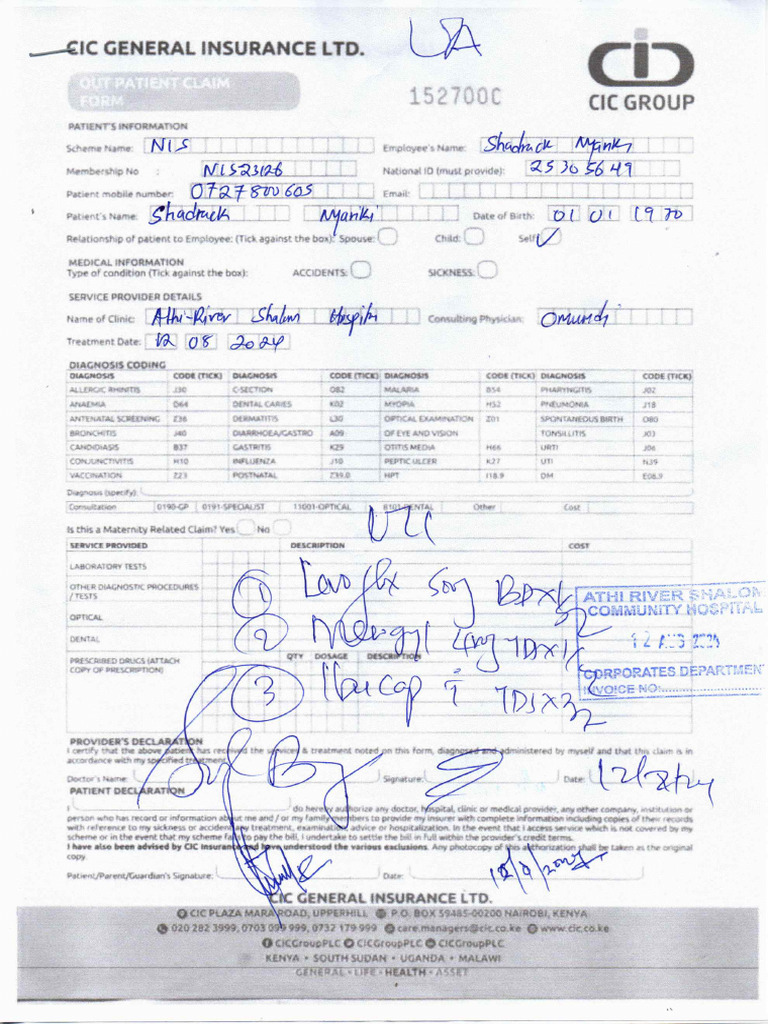 CIC GENERAL INSURANCE LTD.
OUT PATIENT CLAIM FORM
152700C
CIC GROUP
PATIENT'S INFORMATION
Scheme Name: NIS Employee's Name: Shadrack Nyariki
Membership No : NIS23126 National ID (must provide): 25305649
Patient mobile number: 0727800605 Email:
Patient's Name: Shadrack Nyariki Date of Birth: 01 01 1970
Relationship of patient to Employee: (Tick against the box): Spouse: Child: Self: ✓
MEDICAL INFORMATION
Type of condition (Tick against the box): ACCIDENTS: SICKNESS:
SERVICE PROVIDER DETAILS
Name of Clinic: Athi-River Shalom Hospital Consulting Physician: Omundi
Treatment Date: 12 08 2024
DIAGNOSIS CODING
DIAGNOSIS CODE (TICK) DIAGNOSIS CODE (TICK) DIAGNOSIS CODE (TICK) DIAGNOSIS CODE (TICK)
ALLERGIC RHINITIS J30 C-SECTION O82 MALARIA B54 PHARYNGITIS J02
ANAEMIA D64 DENTAL CARIES K02 MYOPIA H52 PNEUMONIA J18
ANTENATAL SCREENING Z36 DERMATITIS L30 OPTICAL EXAMINATION Z01 SPONTANEOUS BIRTH O80
BRONCHITIS J40 DIARRHOEA/GASTRO A09 OF EYE AND VISION TONSILLITIS J03
CANDIDIASIS B37 GASTRITIS K29 OTITIS MEDIA H66 URTI J06
CONJUNCTIVITIS H10 INFLUENZA J10 PEPTIC ULCER K27 UTI N39
VACCINATION Z23 POSTNATAL Z39.0 HPT I18.9 DM E08.9
Diagnosis (specify):
Consultation 0190-GP 0191-SPECIALIST 11001-OPTICAL 6101-DENTAL Other Cost
Is this a Maternity Related Claim? Yes No
SERVICE PROVIDED DESCRIPTION COST
LABORATORY TESTS
OTHER DIAGNOSTIC PROCEDURES / TESTS
①
②
③
OPTICAL
DENTAL
PRESCRIBED DRUGS (ATTACH COPY OF PRESCRIPTION) QTY DOSAGE DESCRIPTION
ATHI RIVER SHALOM
COMMUNITY HOSPITAL
12 AUG 2024
CORPORATES DEPARTMENT
INVOICE NO:
PROVIDER'S DECLARATION
I certify that the above patient has received the services & treatment noted on this form, diagnosed and administered by myself and that this claim is in
accordance with my specified treatment.
Doctor's Name: Signature: Date: 12/8/24
PATIENT DECLARATION
I do hereby authorize any doctor, hospital, clinic or medical provider, any other company, institution or
person who has record or information about me and / or my family members to provide my insurer with complete information including copies of their records
with reference to my sickness or accident, any treatment, examination, advice or hospitalization. In the event that I access service which is not covered by my
scheme or in the event that my scheme fails to pay the bill, I undertake to settle the bill in full within the provider's credit terms.
I have also been advised by CIC Insurance and have understood the various exclusions. Any photocopy of this authorization shall be taken as the original
copy.
Patient/Parent/Guardian's Signature: Date:
CIC GENERAL INSURANCE LTD.
CIC PLAZA MARA ROAD, UPPERHILL P.O. BOX 59485-00200 NAIROBI, KENYA
020 282 3999, 0703 099 999, 0732 179 999 care.managers@cic.co.ke www.cic.co.ke
CICGroupPLC CICGroupPLC CICGroupPLC
KENYA • SOUTH SUDAN • UGANDA • MALAWI
GENERAL • LIFE • HEALTH • ASSET